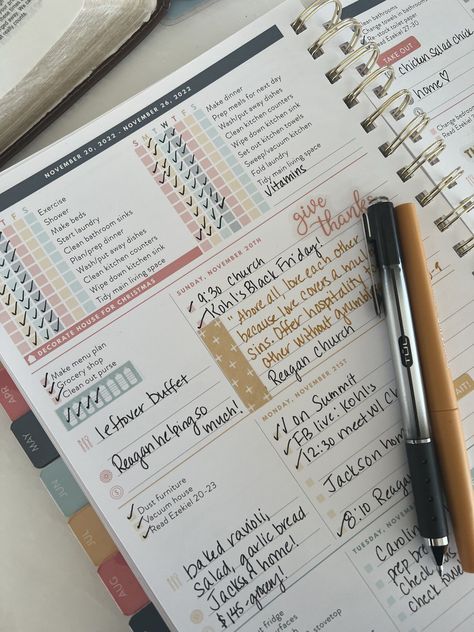 NOVEMBER 20, 2022 - NOVEMBER 26, 2022
S M T W T F S
Make dinner
Prep meals for next day
Wash/put away dishes
Clean kitchen counters
Wipe down kitchen sink
Set out kitchen towels
Sweep/vacuum kitchen
Fold laundry
Tidy main living space
Vitamins
T F S
Exercise
Shower
Make beds
Start laundry
Clean bathroom sinks
Plan/prep dinner
Wash/put away dishes
Clean kitchen counters
Wipe down kitchen sink
Tidy main living space
DECORATE HOUSE FOR CHRISTMAS
Make menu plan
Grocery shop
Clean out purse
leftover buffet
Reagan helping so
much!
Dust furniture
Vacuum house
Read Ezekiel 20-23
baked ravioli,
salad, garlic bread
Jackson home!
fridge
stovetop
give thanks
SUNDAY, NOVEMBER 20TH
9:30 Church
Kohl's Black Friday!
"Above all love each other
because love covers a
sins. Offer hospitality
other without
Reagan Church
MONDAY, NOVEMBER 21ST
on Summit
FB live: Kohl's
12:30 meet w/
Jackson home
8:10 Reagan
TUESDAY, NOVEMBER
prep
check
check
Clean bathrooms
Change towels in bathrooms
Re-stock toilet paper
Read Ezekiel 27-30
TAKE OUT
chicken salad
home
Change bedding
Read Ezekiel
APR
MAY
JUN
JUL
AUG
TUL